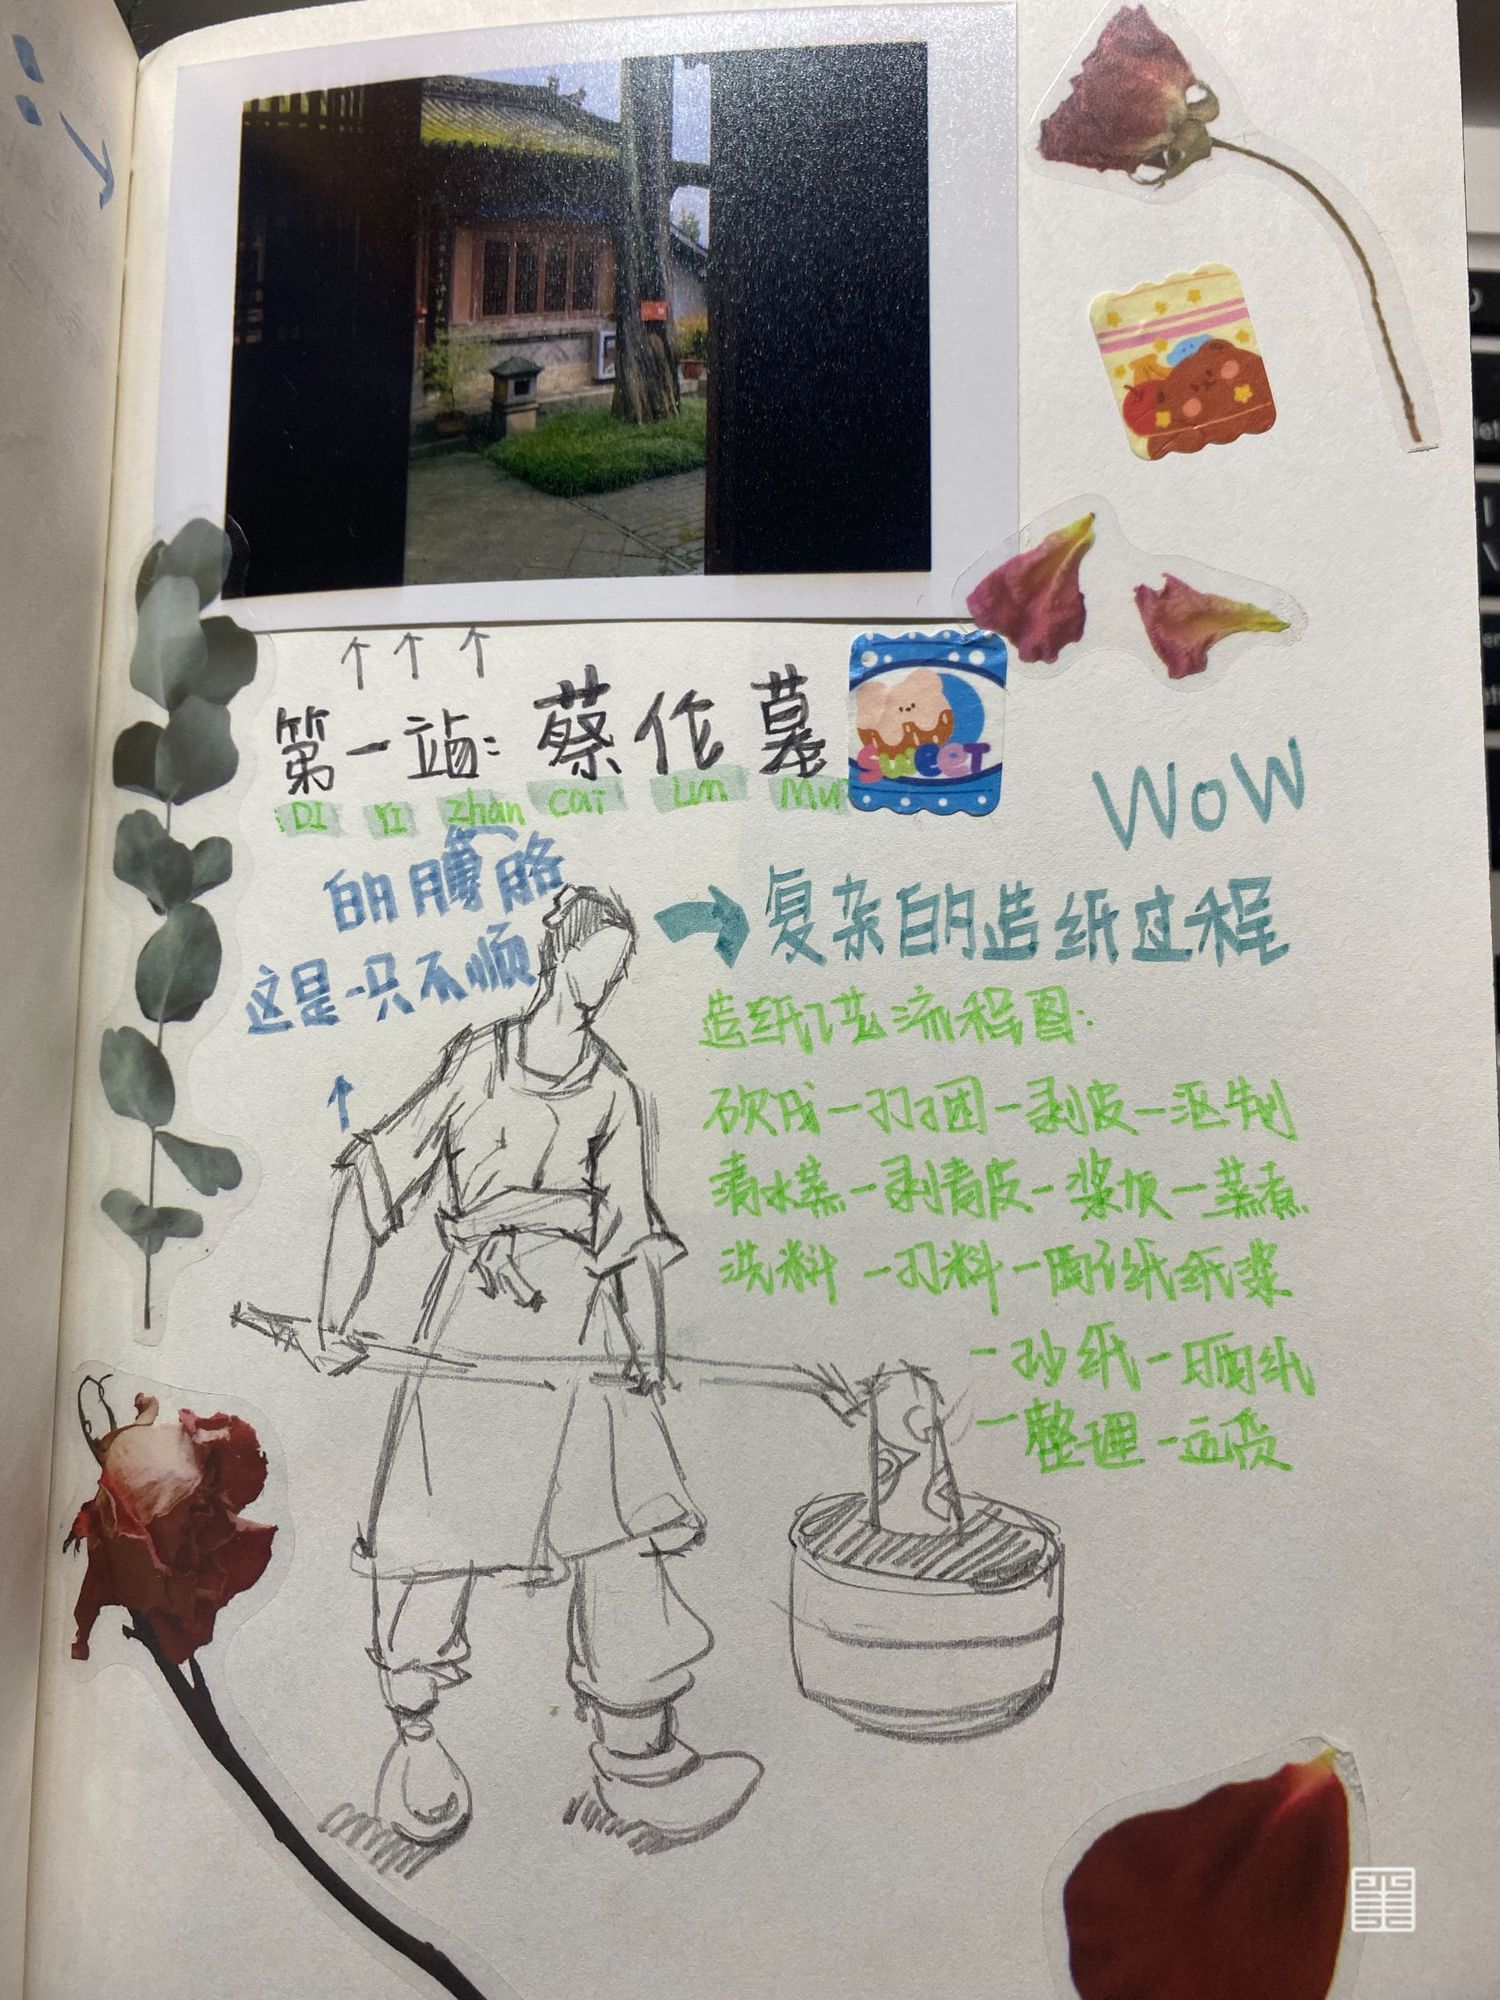 第一站: 蔡伦墓
DI YI Zhan Cai Lun Mu
SWEET
WoW
的胳膊
这是一只不顺
复杂的造纸过程
造纸工艺流程图:
砍伐-打捆-剥皮-沤制
清水蒸-剥青皮-浆灰-蒸煮
洗料-打料-纸浆
-抄纸-晒纸
-整理-运货